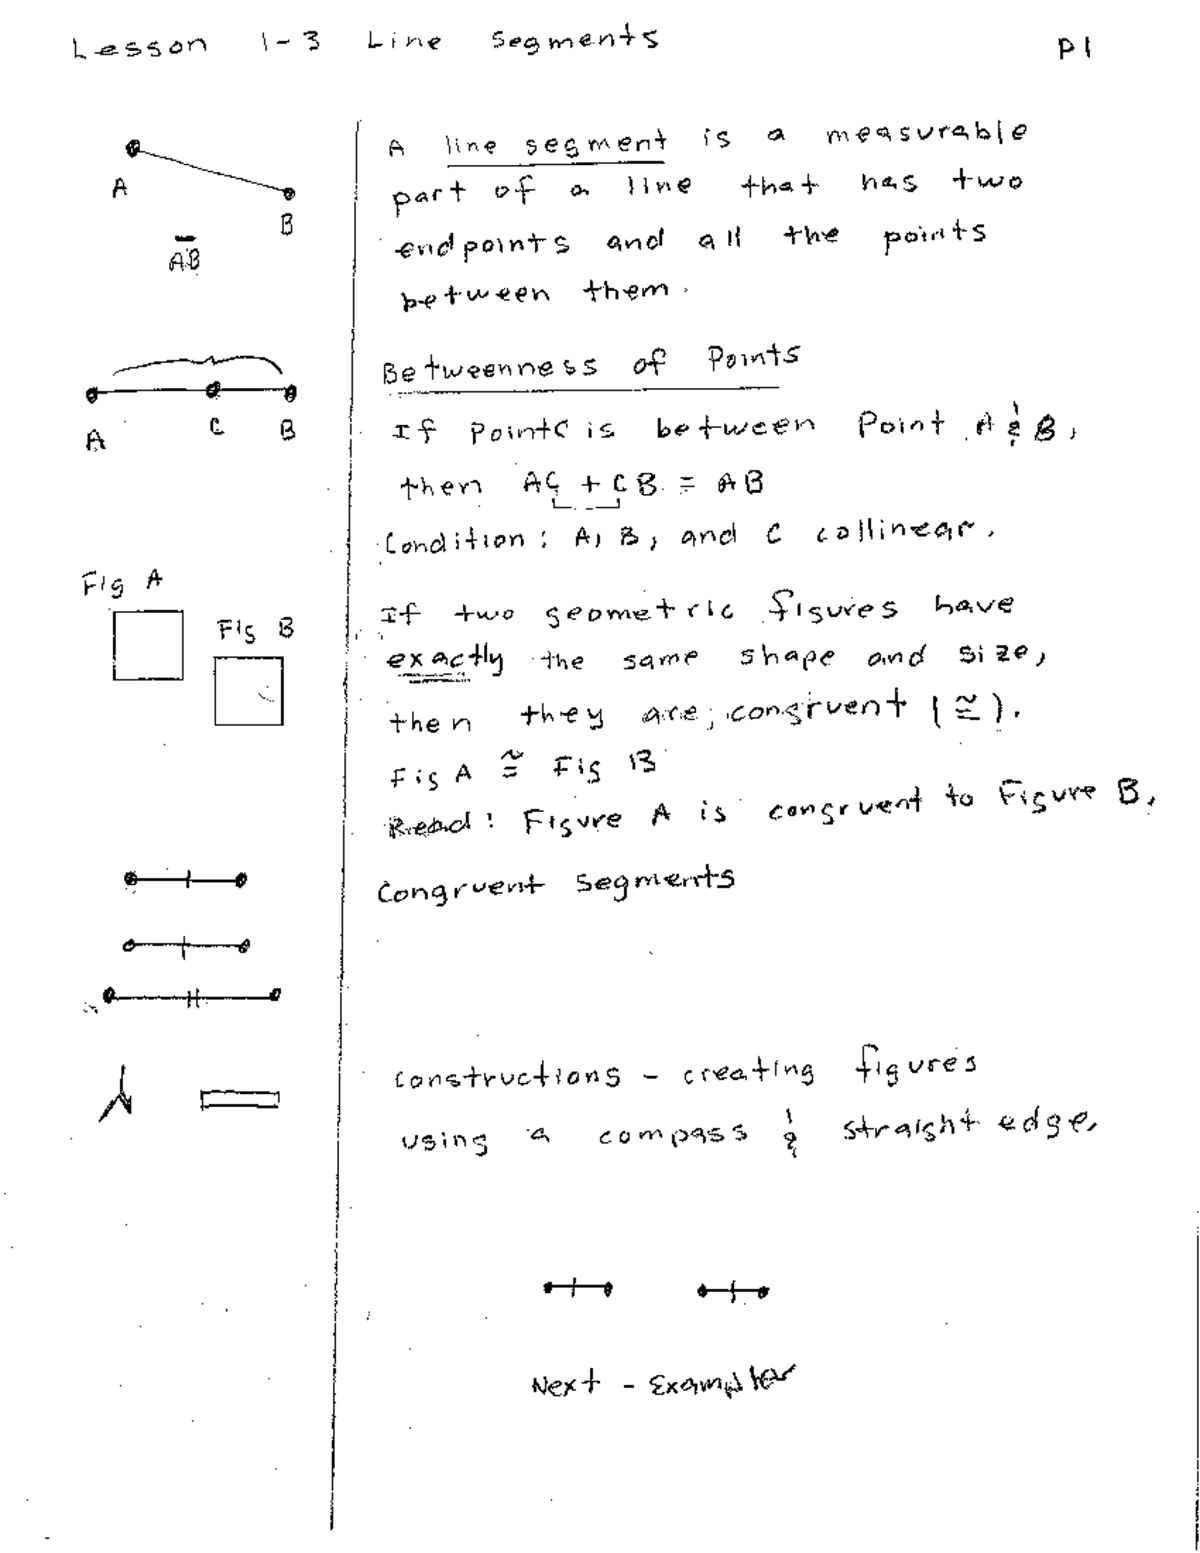 Lesson 1-3 Line Segments P1
A line segment is a measurable
part of a line that has two
endpoints and all the points
between them.
A
B
AB
Betweenness of Points
If Point C is between Point A & B,
then AC + CB = AB
Condition: A, B, and C collinear.
A C B
Fig A
Fig B
If two geometric figures have
exactly the same shape and size,
then they are congruent (≅).
Fig A ≅ Fig B
Read: Figure A is congruent to Figure B.
Congruent Segments
Constructions - creating figures
using a compass & straight edge.
Next - Examples